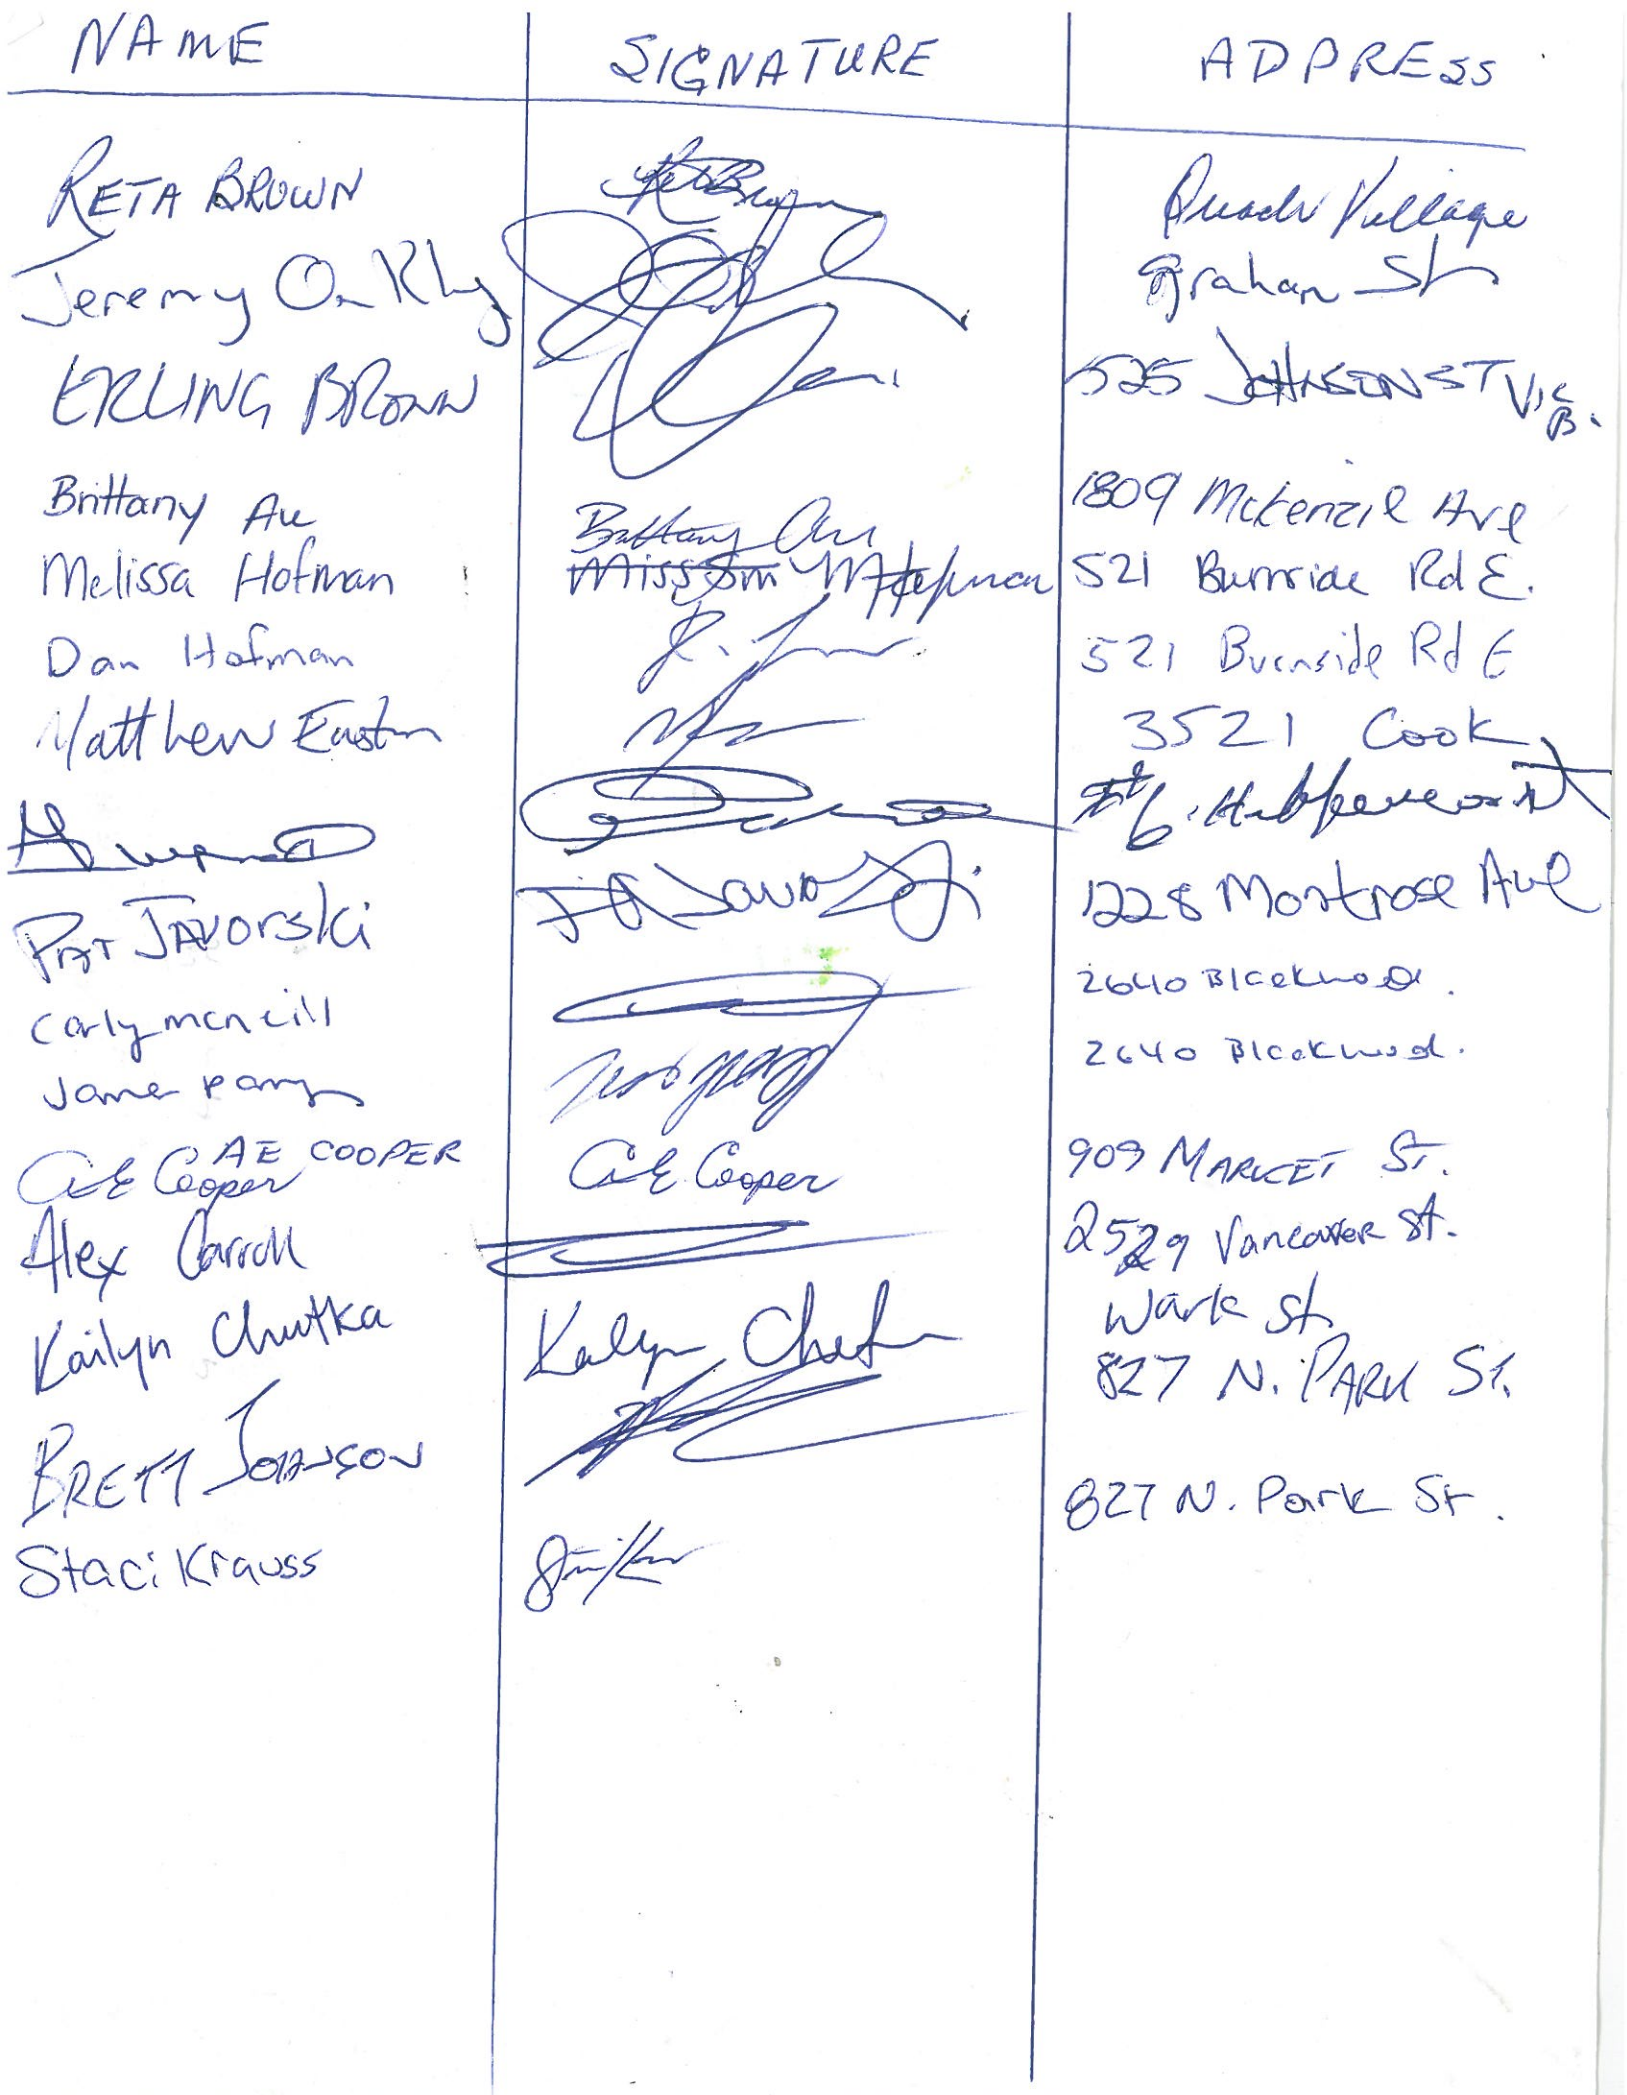 NAME SIGNATURE ADDRESS
RETA BROWN Village
Jeremy Graham St
ERLING BROWN 525 JOHNSON ST VIC B.
Brittany Au Brittany Au 1809 McKenzie Ave
Melissa Hofman MHofman 521 Burnside Rd E.
Dan Hofman 521 Burnside Rd E
Matthew Easton 3521 Cook
#6.
PAT JAVORSKI 1228 Montrose Ave
Carly mcneill 2640 Blackwood.
2640 Blackwood.
AE Cooper AE COOPER AE Cooper 909 MARKET ST.
Alex Carroll 2529 Vancouver St.
Kailyn Chutka Kailyn Wark St
BRETT JOHNSON 827 N. PARK ST.
Staci Krauss 827 N. Park St.